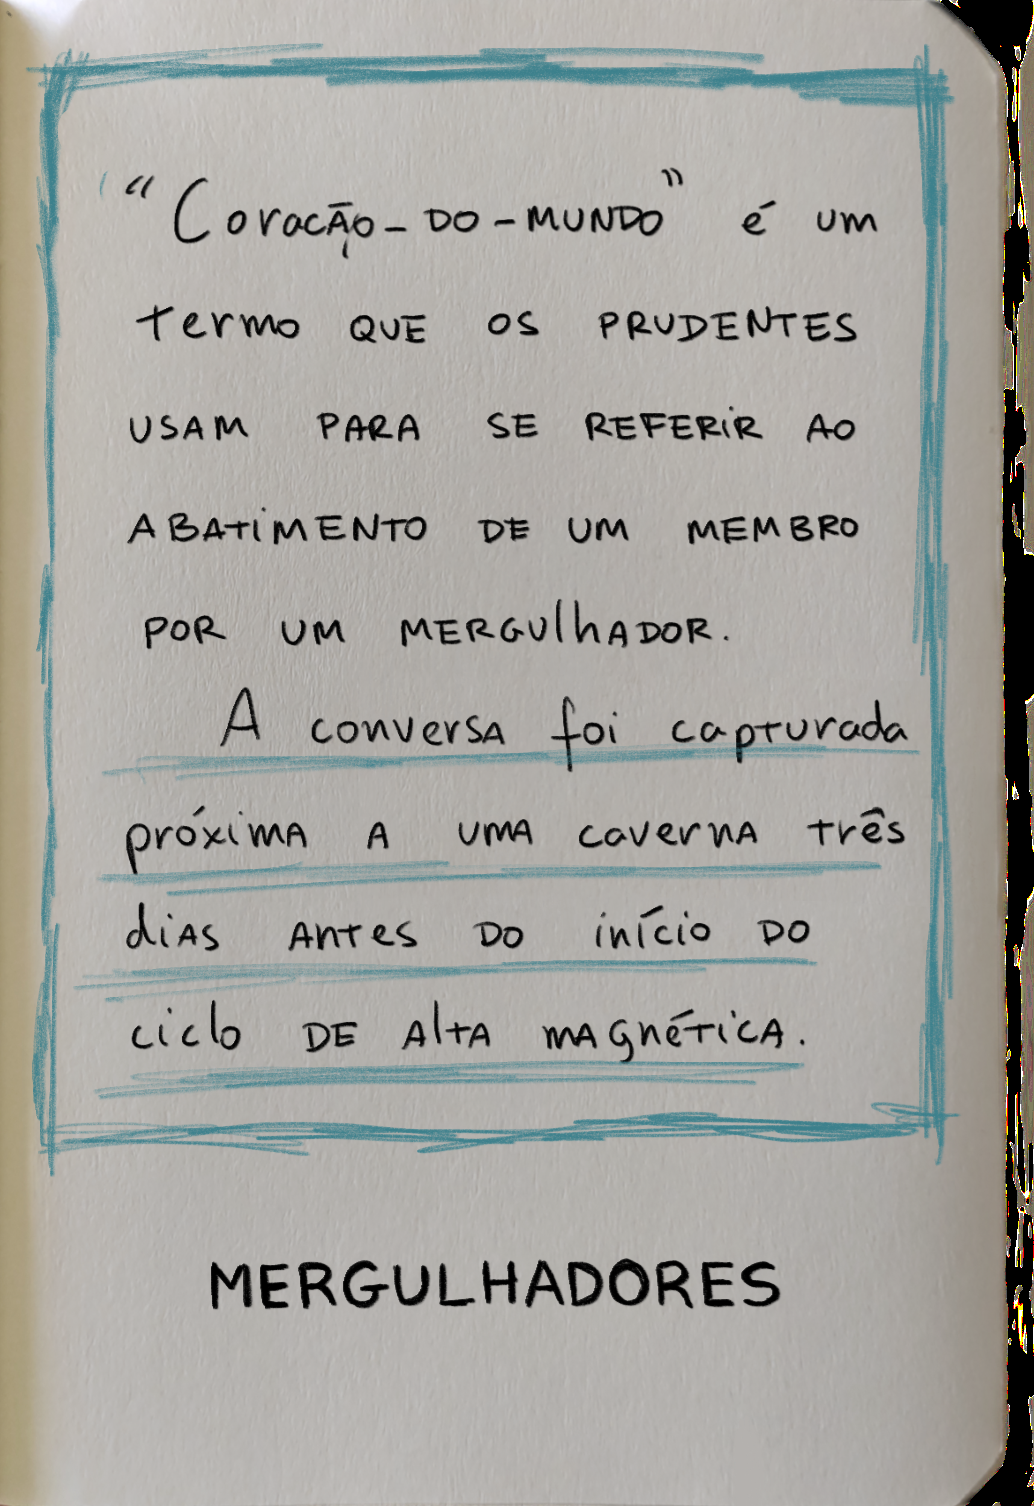 “Coração-DO-MUNDO” é um
termo QUE OS PRUDENTES
USAM PARA SE REFERIR AO
ABATIMENTO DE UM MEMBRO
POR UM MERGULHADOR.
A conversa foi capturada
próxima a uma caverna três
dias antes do início do
ciclo DE Alta magnética.
MERGULHADORES